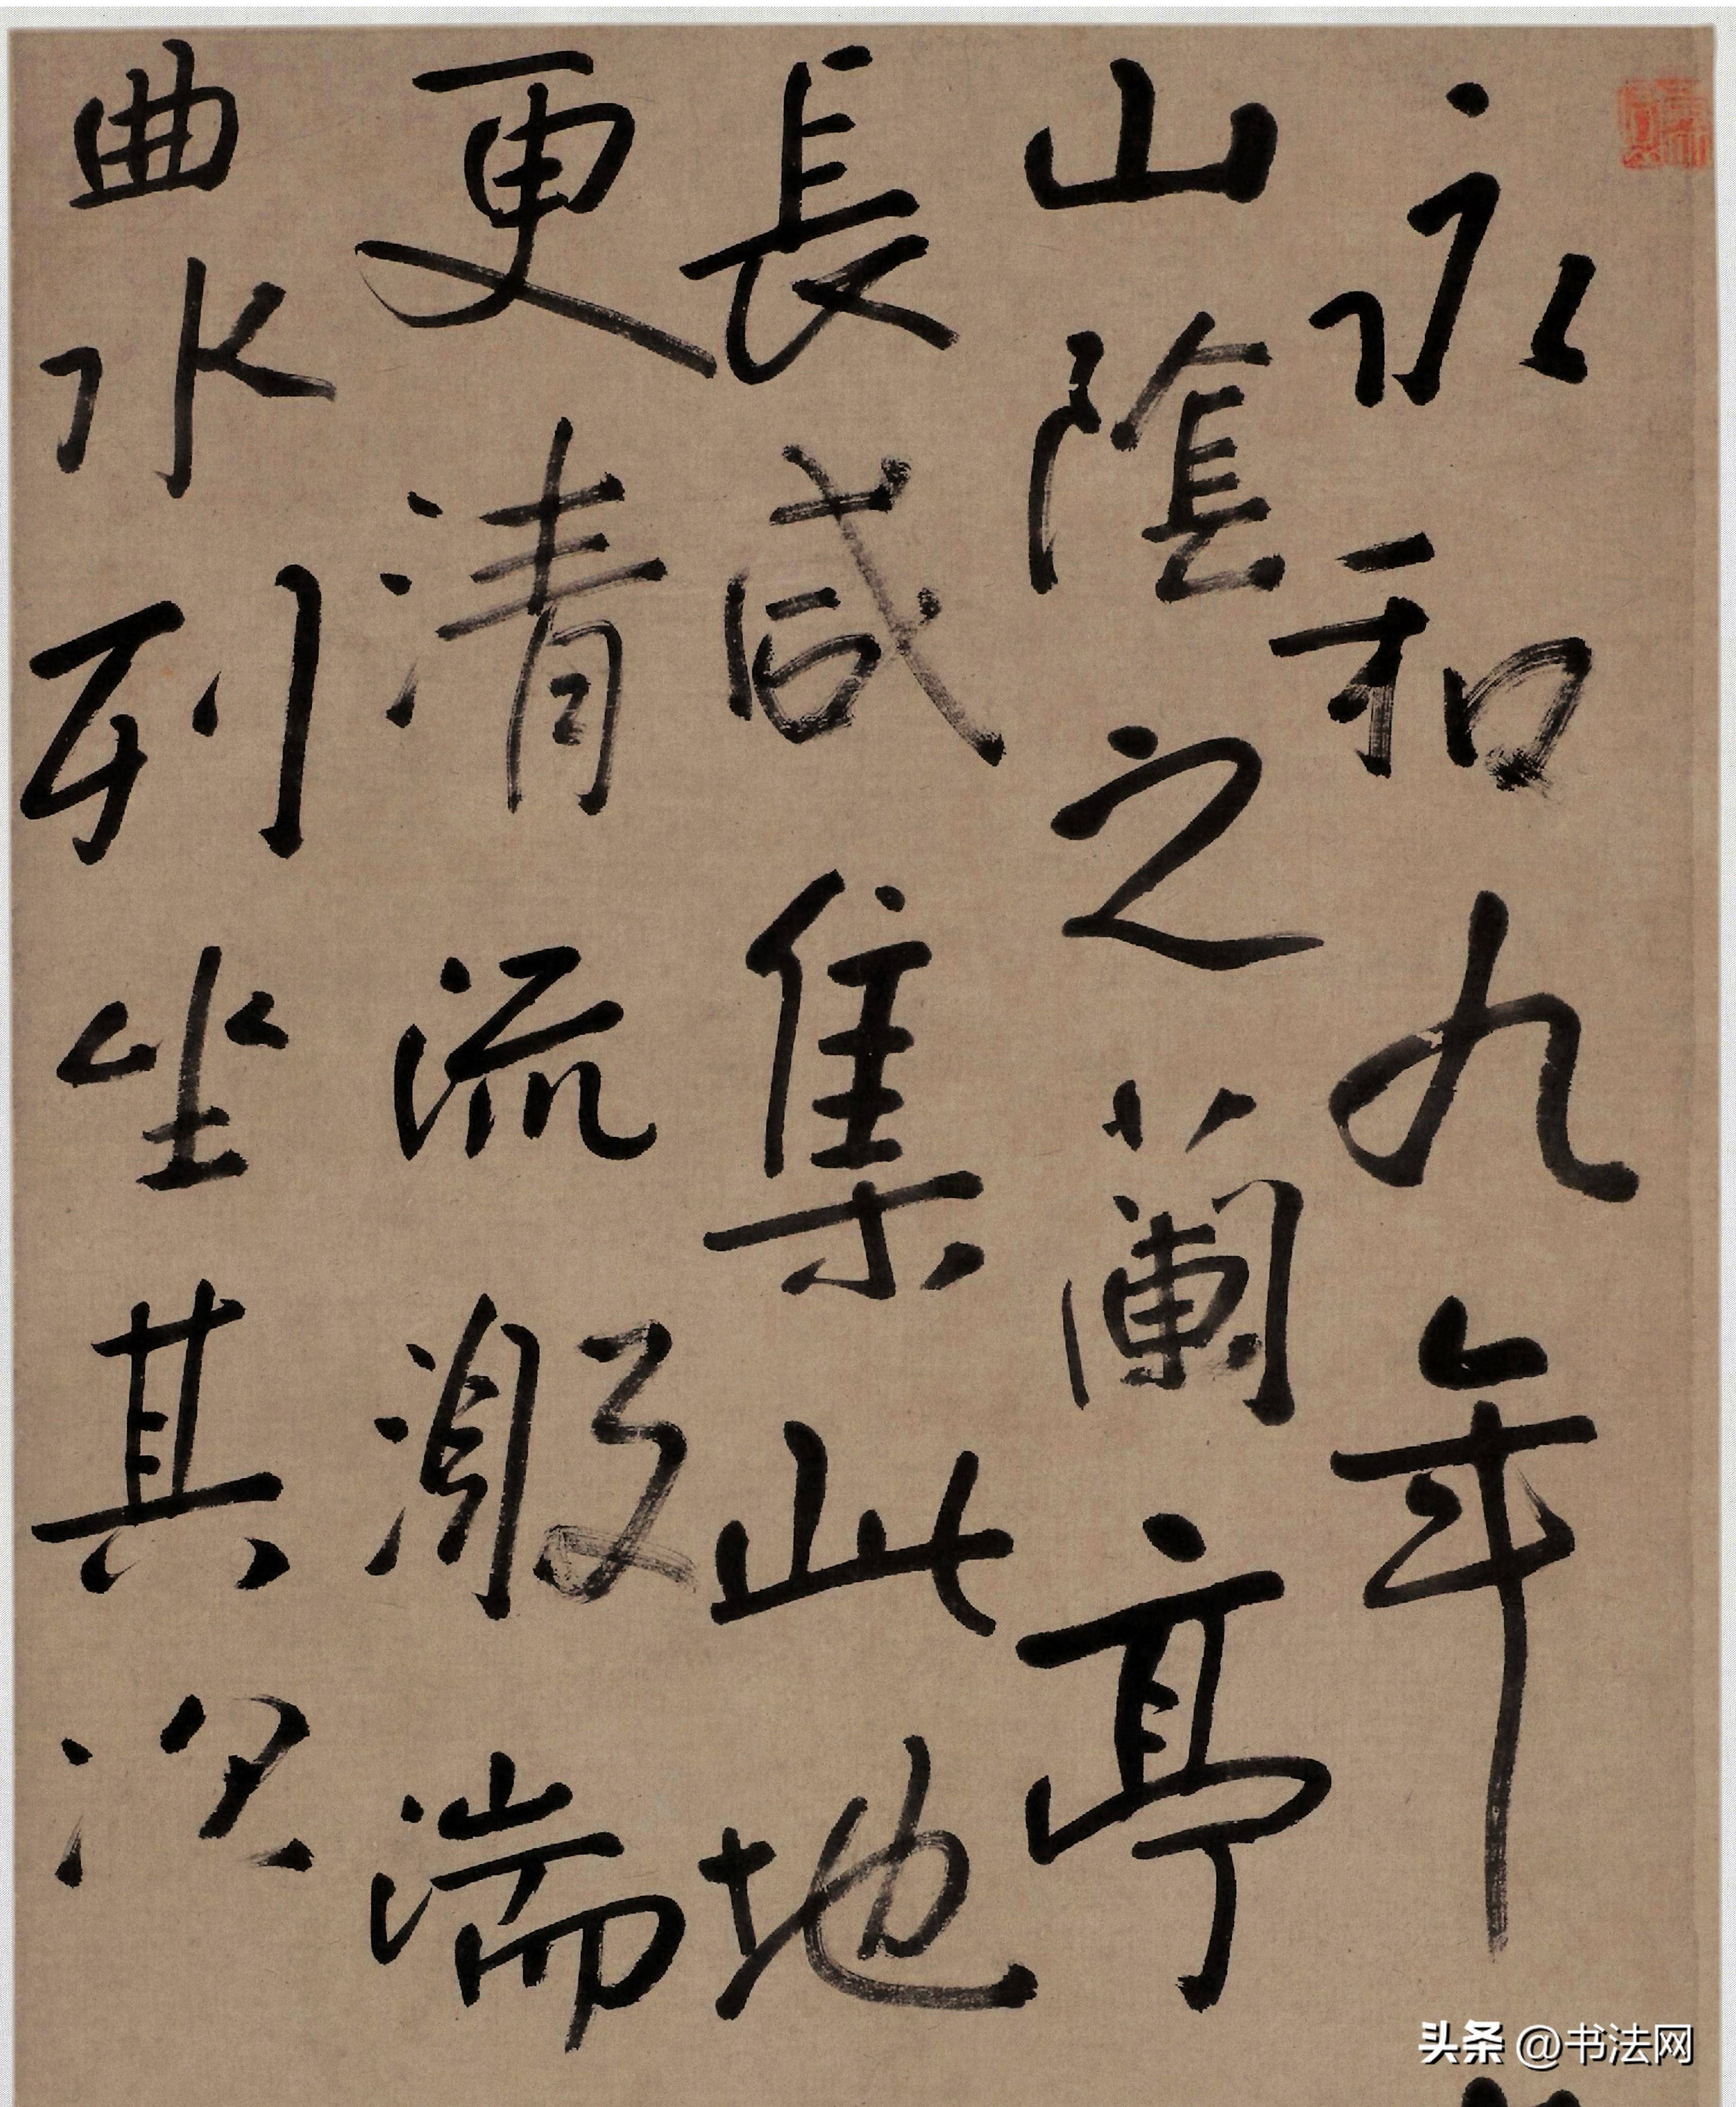 永和九年
山陰之蘭亭
長咸集此地
更清流激湍
曲水列坐其次
头条 @书法网